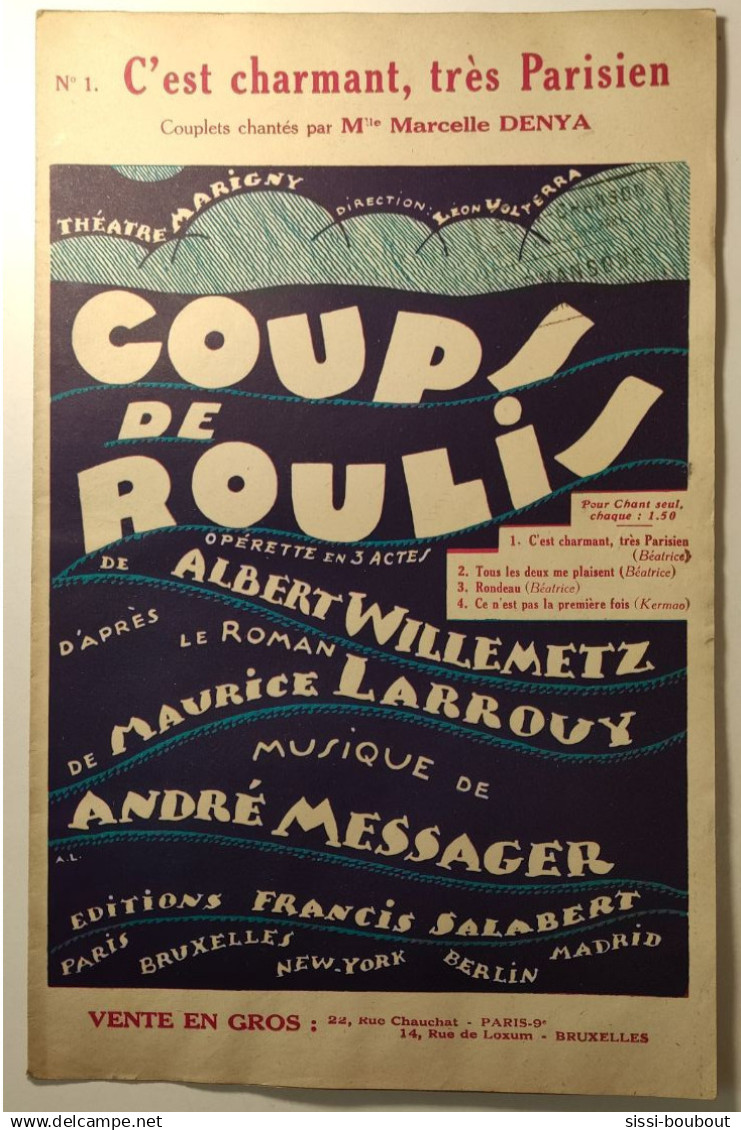 N° 1. C'est charmant, très Parisien
Couplets chantés par Mlle Marcelle DENYA
THÉATRE MARIGNY
DIRECTION: LÉON VOLTERRA
COUPS
DE
ROULIS
Pour Chant seul,
chaque : 1.50
1. C'est charmant, très Parisien
(Béatrice)
2. Tous les deux me plaisent (Béatrice)
3. Rondeau (Béatrice)
4. Ce n'est pas la première fois (Kermao)
OPÉRETTE EN 3 ACTES
DE ALBERT WILLEMETZ
D'APRÈS LE ROMAN
DE MAURICE LARROUY
MUSIQUE DE
ANDRÉ MESSAGER
A.L.
EDITIONS FRANCIS SALABERT
PARIS BRUXELLES NEW-YORK BERLIN MADRID
VENTE EN GROS : 22, Rue Chauchat - PARIS-9e
14, Rue de Loxum - BRUXELLES
sissi-boubout